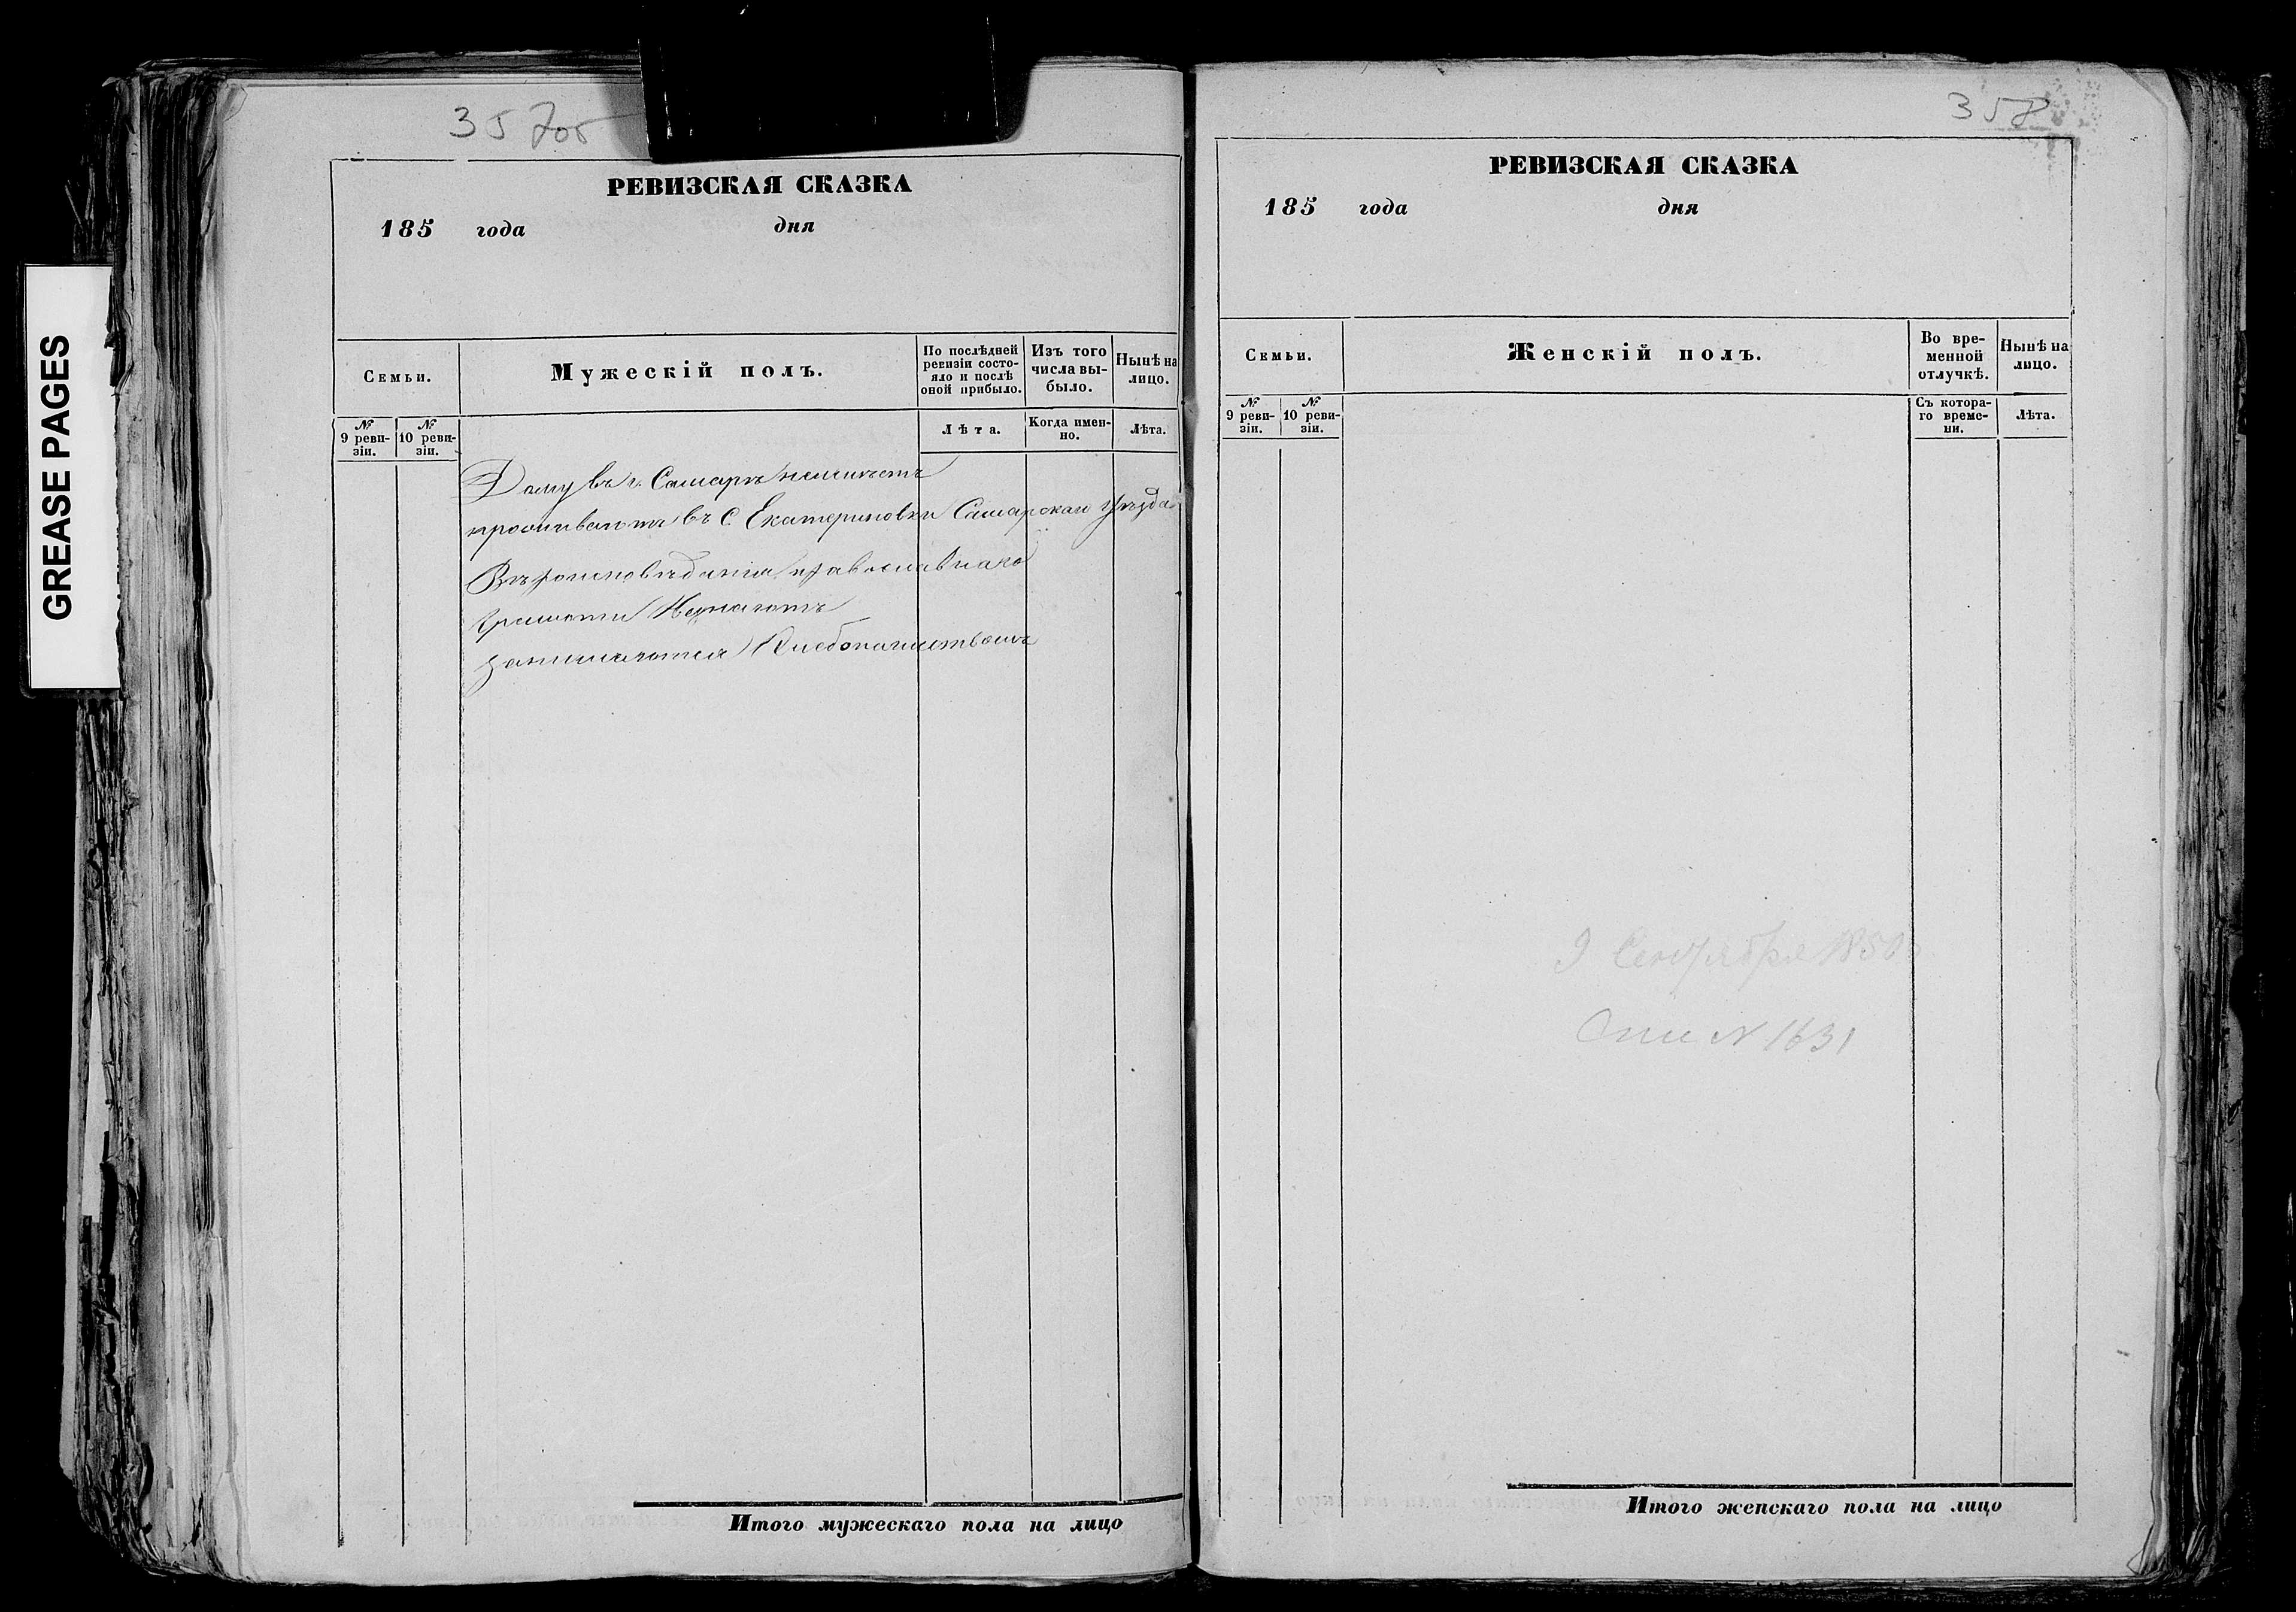 GREASE PAGES
357об
РЕВИЗСКАЯ СКАЗКА
185 года дня
Семьи.
Мужескій полъ.
По послѣдней ревизіи состояло и послѣ оной прибыло.
Изъ того числа выбыло.
Нынѣ на лицо.
№ 9 ревизіи.
№ 10 ревизіи.
Лѣта.
Когда именно.
Лѣта.
Дому въ г. Самарѣ неимѣетъ
проживаютъ въ С Екатериновки Самарскаго уѣзда
Вѣроисповѣданія православнаго
грамоти Незнаютъ
занимаются Хлебопашествомъ
Итого мужескаго пола на лицо
358
РЕВИЗСКАЯ СКАЗКА
185 года дня
Семьи.
Женскій полъ.
Во временной отлучкѣ.
Нынѣ на лицо.
№ 9 ревизіи.
№ 10 ревизіи.
Съ котораго времени.
Лѣта.
9 Сентября
№ 1631
Итого женскаго пола на лицо